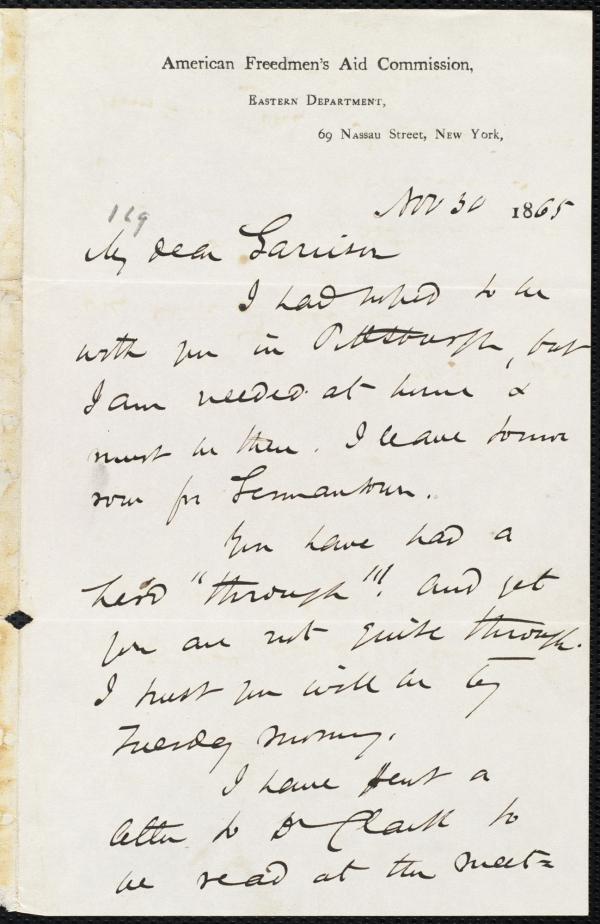 American Freedmen's Aid Commission,
Eastern Department,
69 Nassau Street, New York,
169
Nov 30 1865
My dear Garrison
I had hoped to be
with you in Pittsburgh, but
I am needed at home &
must be there. I leave tomor
row for Germantown.
You have had a
hard "through"!! and yet
you are not quite through.
I trust you will be by
Tuesday morning.
I have sent a
letter to Dr Clark to
be read at the meet=